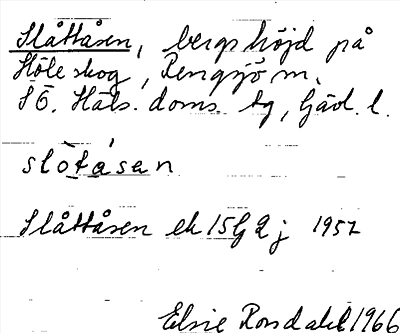 Slåttåsen, bergshöjd på
Höle skog, Rengsjö sn.
S Ö. Häls. doms. tg, Gävl. l.
slòtåsan
Slåttåsen ek 15G 2 j 1957
Elsie Rosdahl 1966